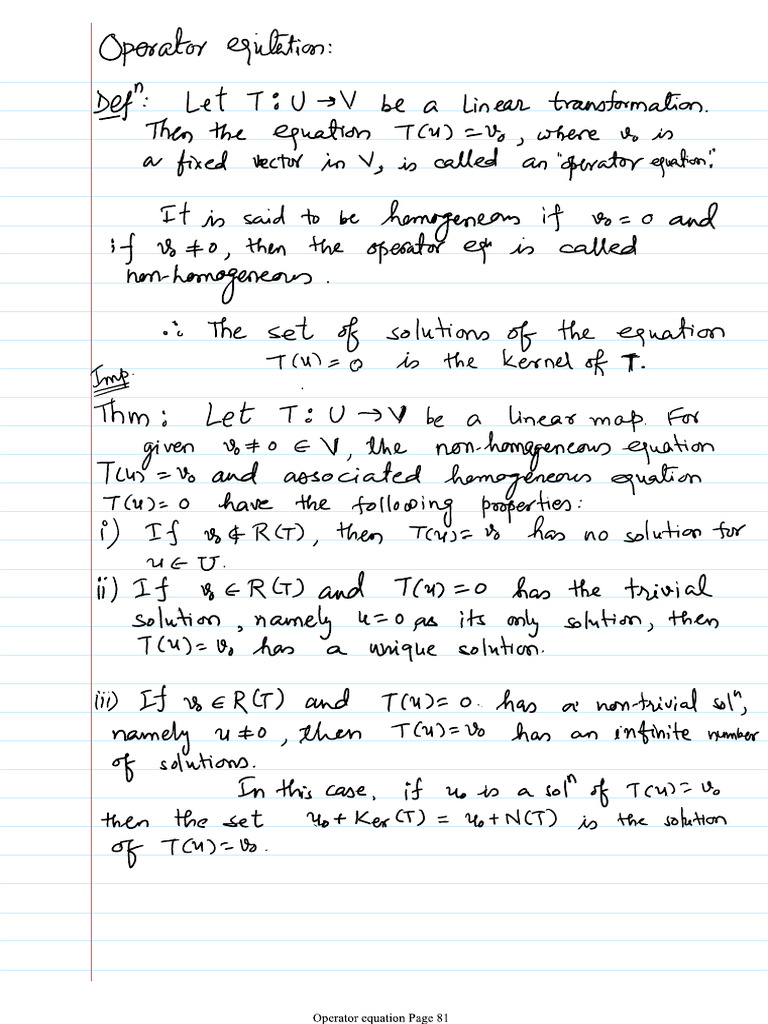 Operator equation:
Defⁿ: Let T : U → V be a Linear transformation.
Then the equation T(u) = v₀, where v₀ is
a fixed vector in V, is called an "operator equation."
It is said to be homogeneous if v₀ = 0 and
if v₀ ≠ 0, then the operator eqⁿ is called
non-homogeneous.
∴ The set of solutions of the equation
T(u) = 0 is the kernel of T.
Imp.
Thm: Let T : U → V be a linear map. For
given v₀ ≠ 0 ∈ V, the non-homogeneous equation
T(u) = v₀ and associated homogeneous equation
T(u) = 0 have the following properties:
i) If v₀ ∉ R(T), then T(u) = v₀ has no solution for
u ∈ U.
ii) If v₀ ∈ R(T) and T(u) = 0 has the trivial
solution, namely u = 0 as its only solution, then
T(u) = v₀ has a unique solution.
iii) If v₀ ∈ R(T) and T(u) = 0. has a non-trivial solⁿ,
namely u ≠ 0, then T(u) = v₀ has an infinite number
of solutions.
In this case, if u₀ is a solⁿ of T(u) = v₀
then the set u₀ + Ker(T) = u₀ + N(T) is the solution
of T(u) = v₀.
Operator equation Page 81